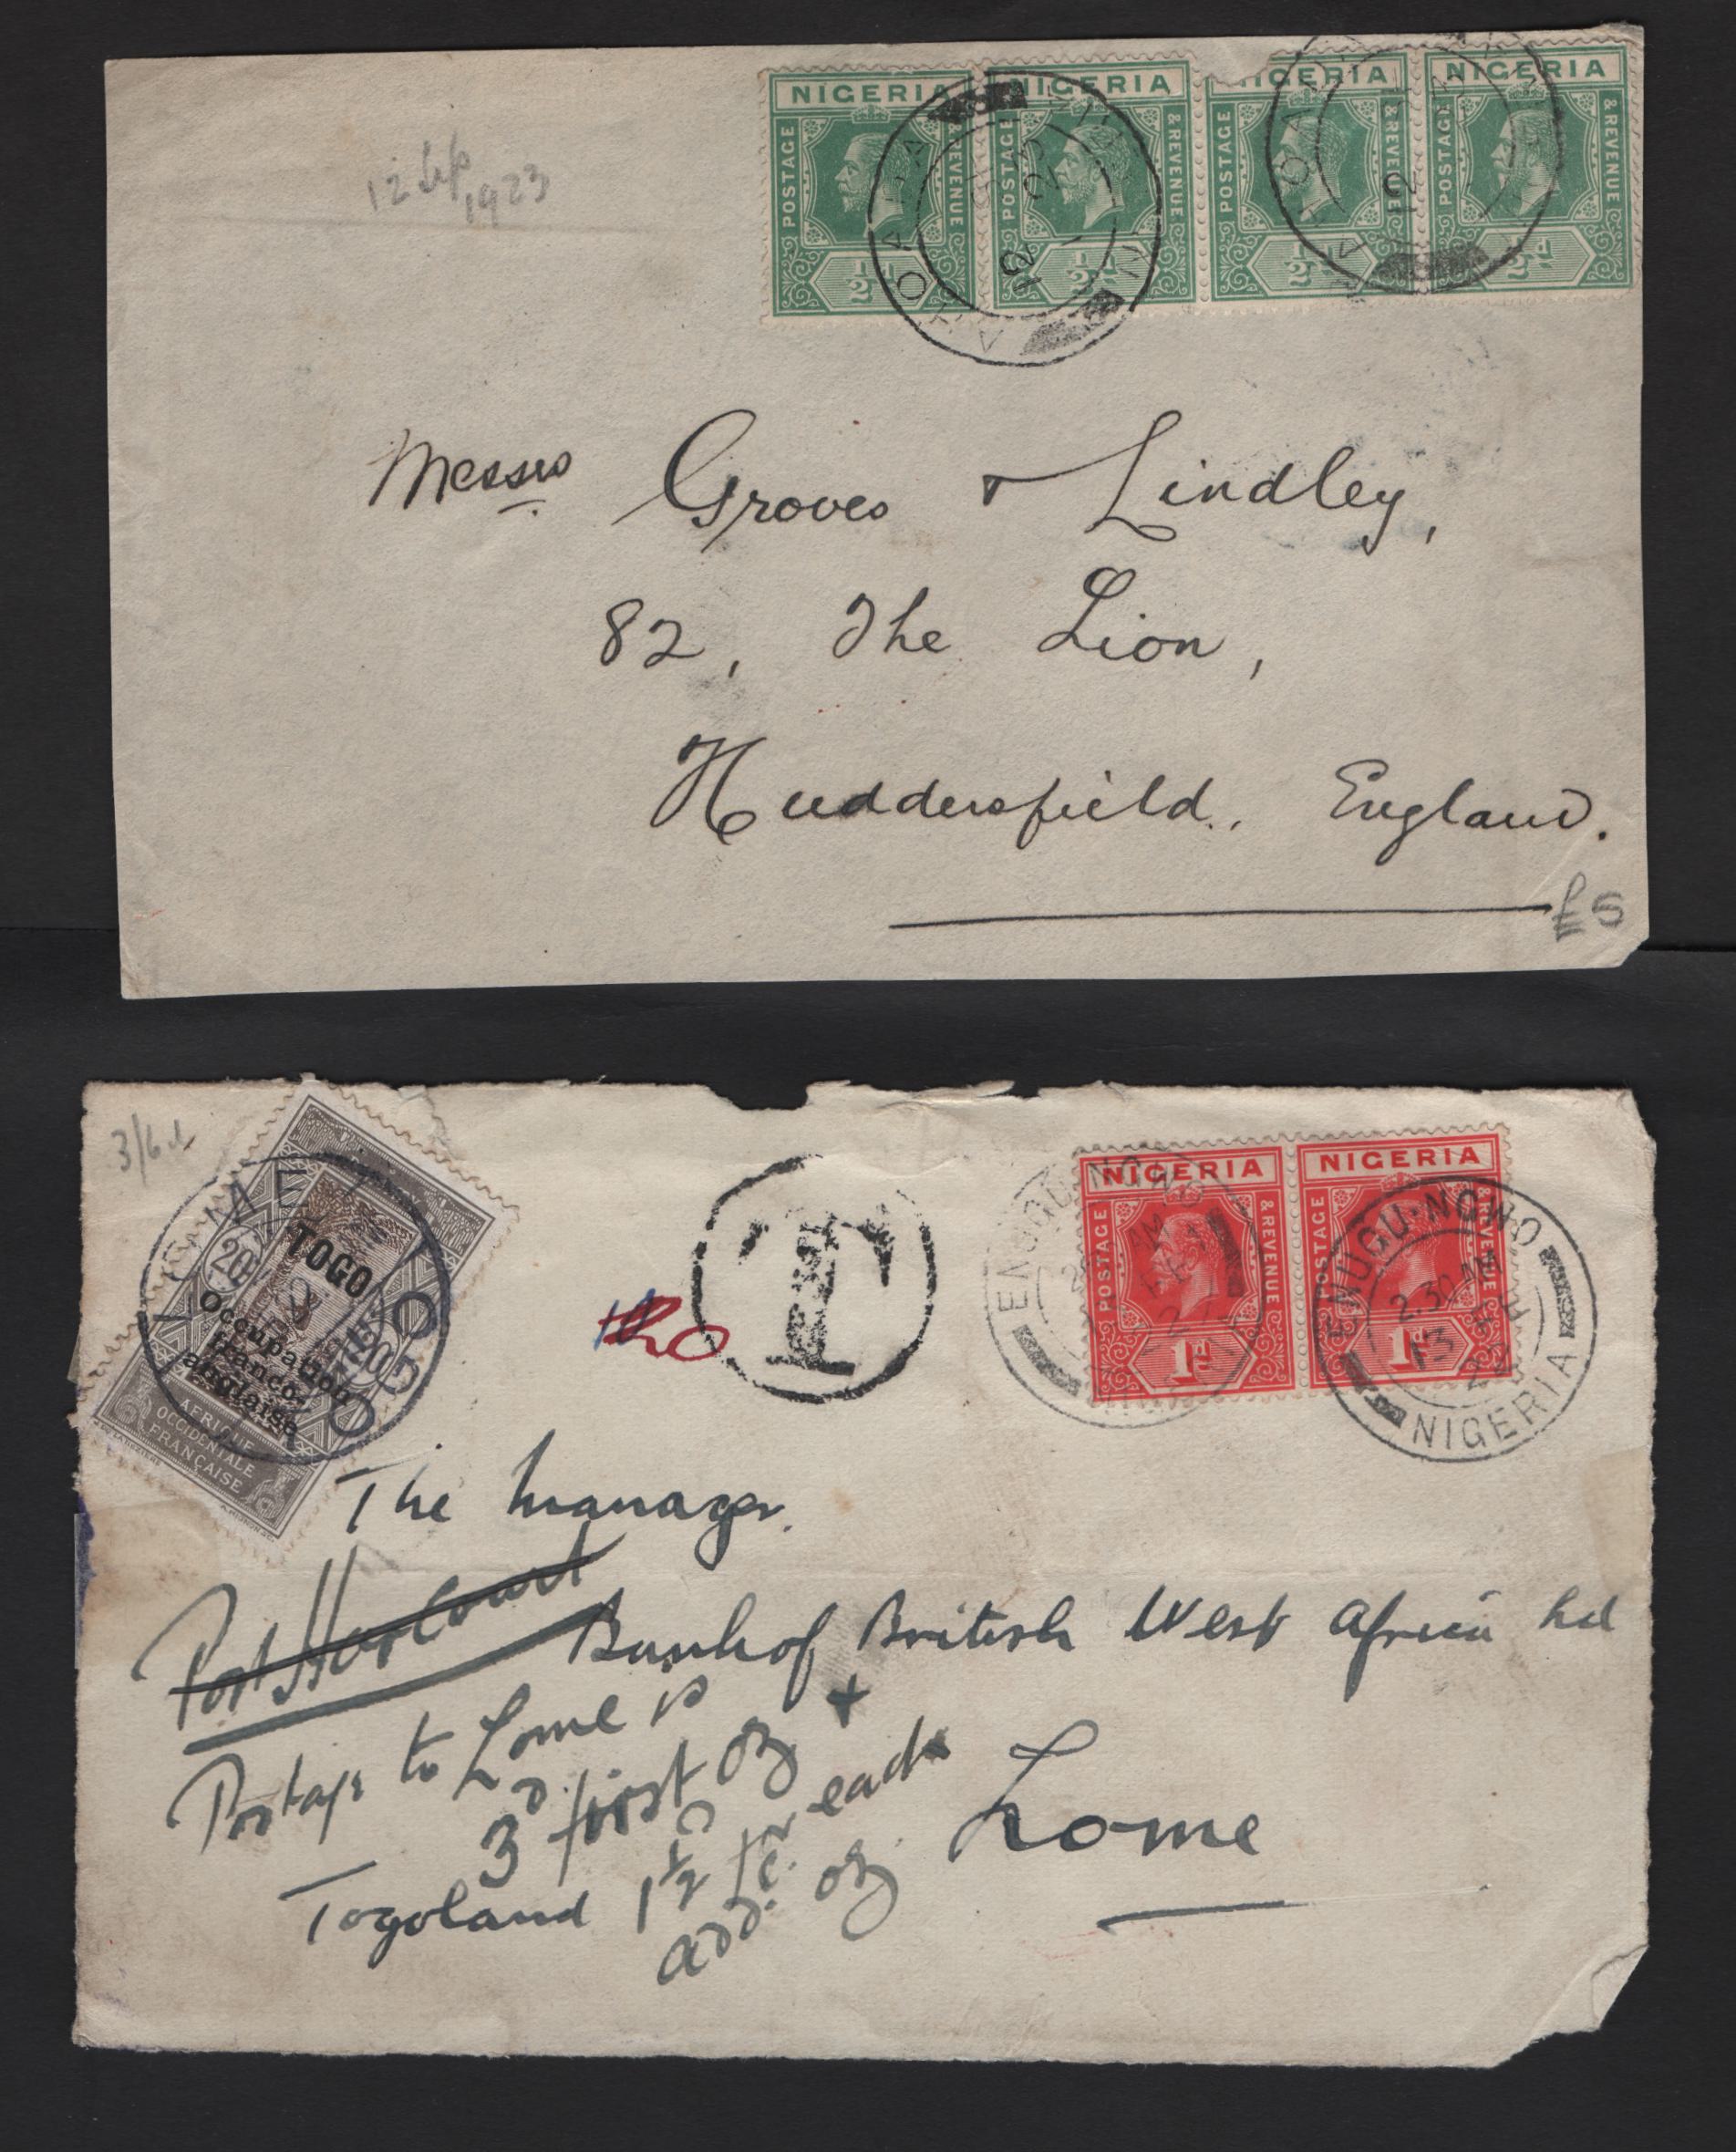 12 Sep
1923
NIGERIA
POSTAGE
& REVENUE
½d
NIGERIA
POSTAGE
& REVENUE
½d
NIGERIA
POSTAGE
REVENUE
½
NIGERIA
POSTAGE
& REVENUE
½d
12
23
12
Messrs Groves & Lindley,
82, The Lion,
Huddersfield, England.
£5
3/6d
TOGO
Occupation
franco-
anglaise
AFRIQUE
OCCIDENTALE
FRANÇAISE
LOME TOGO
20
T
NIGERIA
POSTAGE
& REVENUE
1d
NIGERIA
POSTAGE
REVENUE
1d
ENUGU-NGWO
ENUGU·NGWO
2.30 AM
13
NIGERIA
The Manager.
Port Harcourt
Bank of British West Africa Ltd
Postage to Lome is
3d first oz +
1½d for each
add. oz
Lome
Togoland